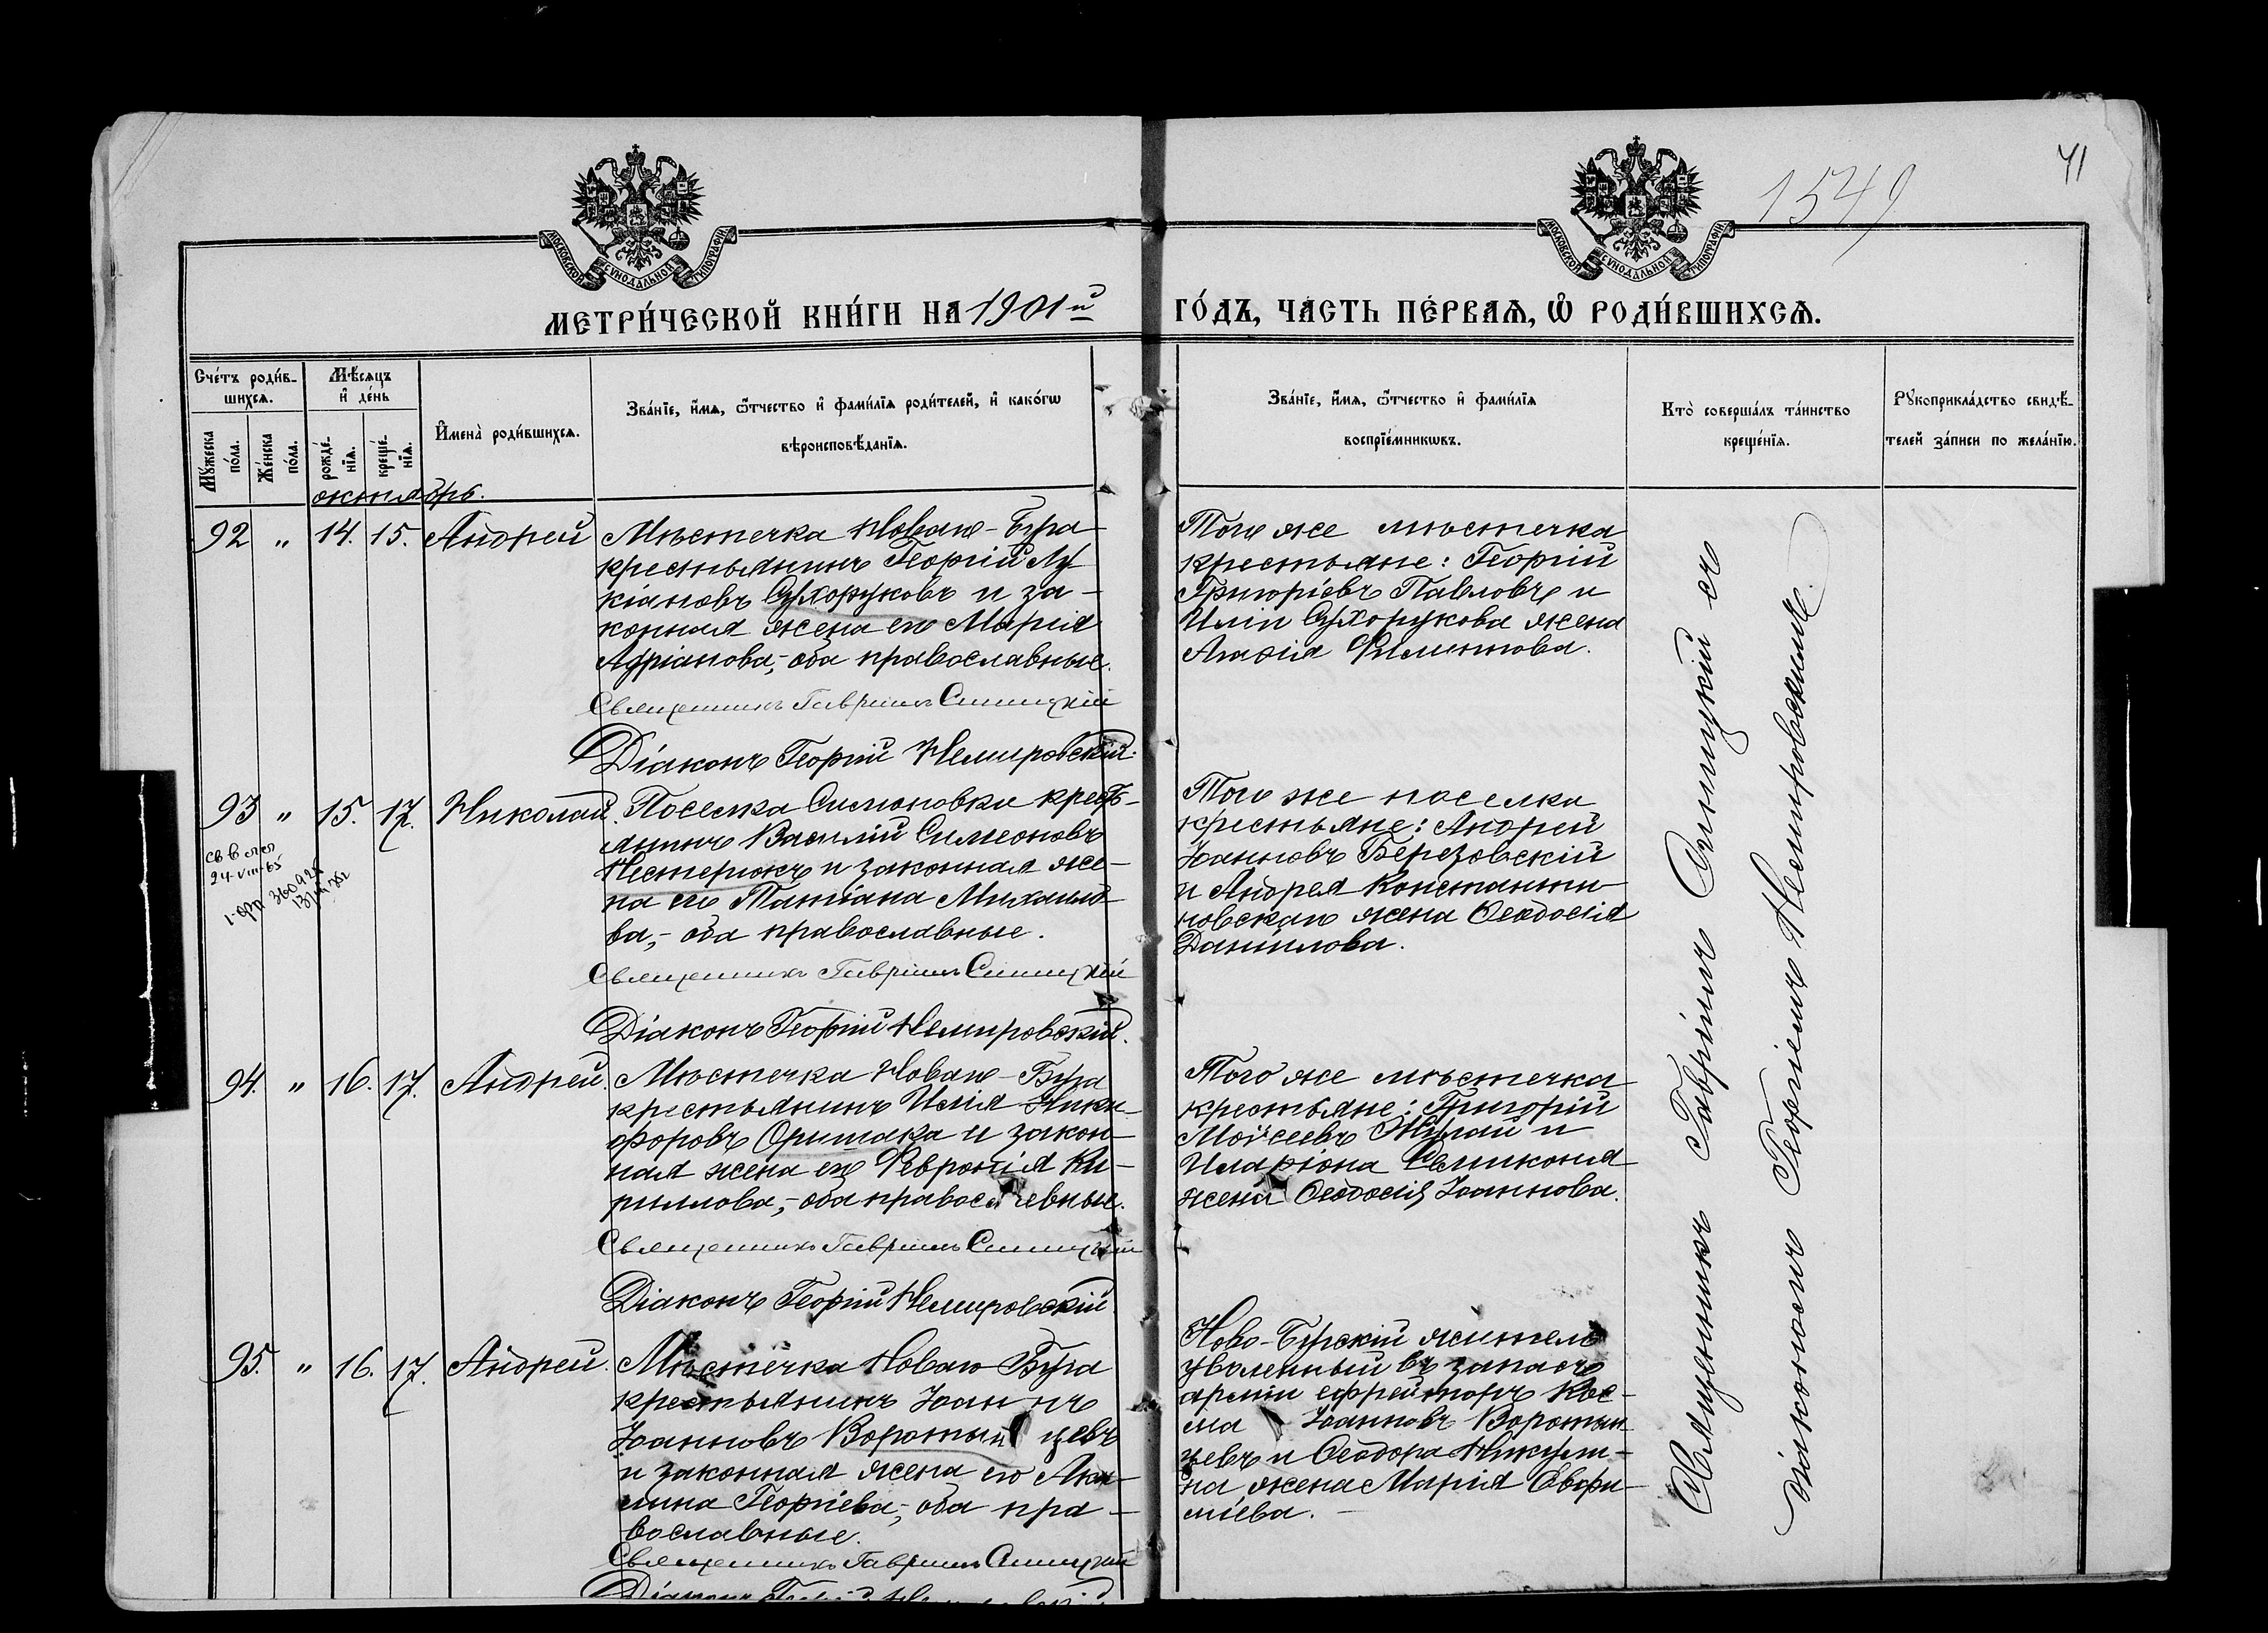 1549
41
МОСКОВСКОЙ СѴНОДАЛЬНОЙ ТИПОГРАФІИ
МОСКОВСКОЙ СѴНОДАЛЬНОЙ ТИПОГРАФІИ
МЕТРИ́ЧЕСКОЙ КНИ́ГИ НА 1901й ГО́ДЪ, ЧА́СТЬ ПЕ́РВАЯ, Ѿ РОДИ́ВШИХСЯ.
Сче́тъ роди́в-
шихся.
Мѣ́сяцъ
и҆ де́нь
Му́жеска
по́ла.
Же́нска
по́ла.
рожде́-
нія.
креще́-
нія.
И҆мена̀ роди́вшихся.
Зва́ніе, и҆́мя, ѻ҆́тчество и҆ фами́лія роди́телей, и҆ како́гѡ
вѣроисповѣ́данія.
Зва́ніе, и҆́мя, ѻ҆́тчество и҆ фами́лія
воспріе́мникѡвъ.
Кто̀ соверша́лъ та́инство
креще́нія.
Рукоприкла́дство свидѣ́-
телей за́писи по жела́нію.
октябрь.
92 " 14. 15. Андрей
Мѣстечка Новаго-Буга
крестьянинъ Георгій Лу-
кіановъ Сухоруковъ и за-
конная жена его Марія
Адріанова,- оба православные.
Священникъ Гавріилъ Синицкій
Діаконъ Георгій Немировскій.
Того же мѣстечка
крестьяне: Георгій
Григоріевъ Павловъ и
Иліи Сухорукова жена
Агафія Филиппова.
93 " 15. 17. Николай.
св в
24-VIII-65
Поселка Симоновки кресть-
янинъ Василій Симеоновъ
Нестерюкъ и законная же-
на его Татіана Михаило-
ва,- оба православные.
Священникъ Гавріилъ Синицкій
Діаконъ Георгій Немировскій.
Того же поселка
крестьяне: Андрей
Іоанновъ Березовскій
и Андрея Константи-
новскаго жена Ѳеодосія
Даніилова.
94. " 16. 17. Андрей.
Мѣстечка Новаго-Буга
крестьянинъ Илія Ники-
форовъ Оришака и закон-
ная жена его Февронія Ки-
риллова,- оба православные.
Священникъ Гавріилъ Синицкій
Діаконъ Георгій Немировскій
Того же мѣстечка
крестьяне: Григорій
Моѵсеевъ и
Иларіона
жена Ѳеодосія Іоаннова.
95. " 16. 17. Андрей.
Мѣстечка Новаго Буга
крестьянинъ Іоаннъ
Іоанновъ Воротынцевъ
и законная жена его Аки-
лина Георгіева,- оба пра-
вославные.
Священникъ Гавріилъ Синицкій
Діаконъ Георгій Немировскій
Ново-Бугскій житель
уволенный въ запасъ
арміи ефрейторъ Кос-
ма Іоанновъ Воротын-
цевъ и Ѳеодора Никули-
на жена Марія Евфи-
міева.
Священникъ Гавріилъ Синицкій съ
діакономъ Георгіемъ Немировскимъ.